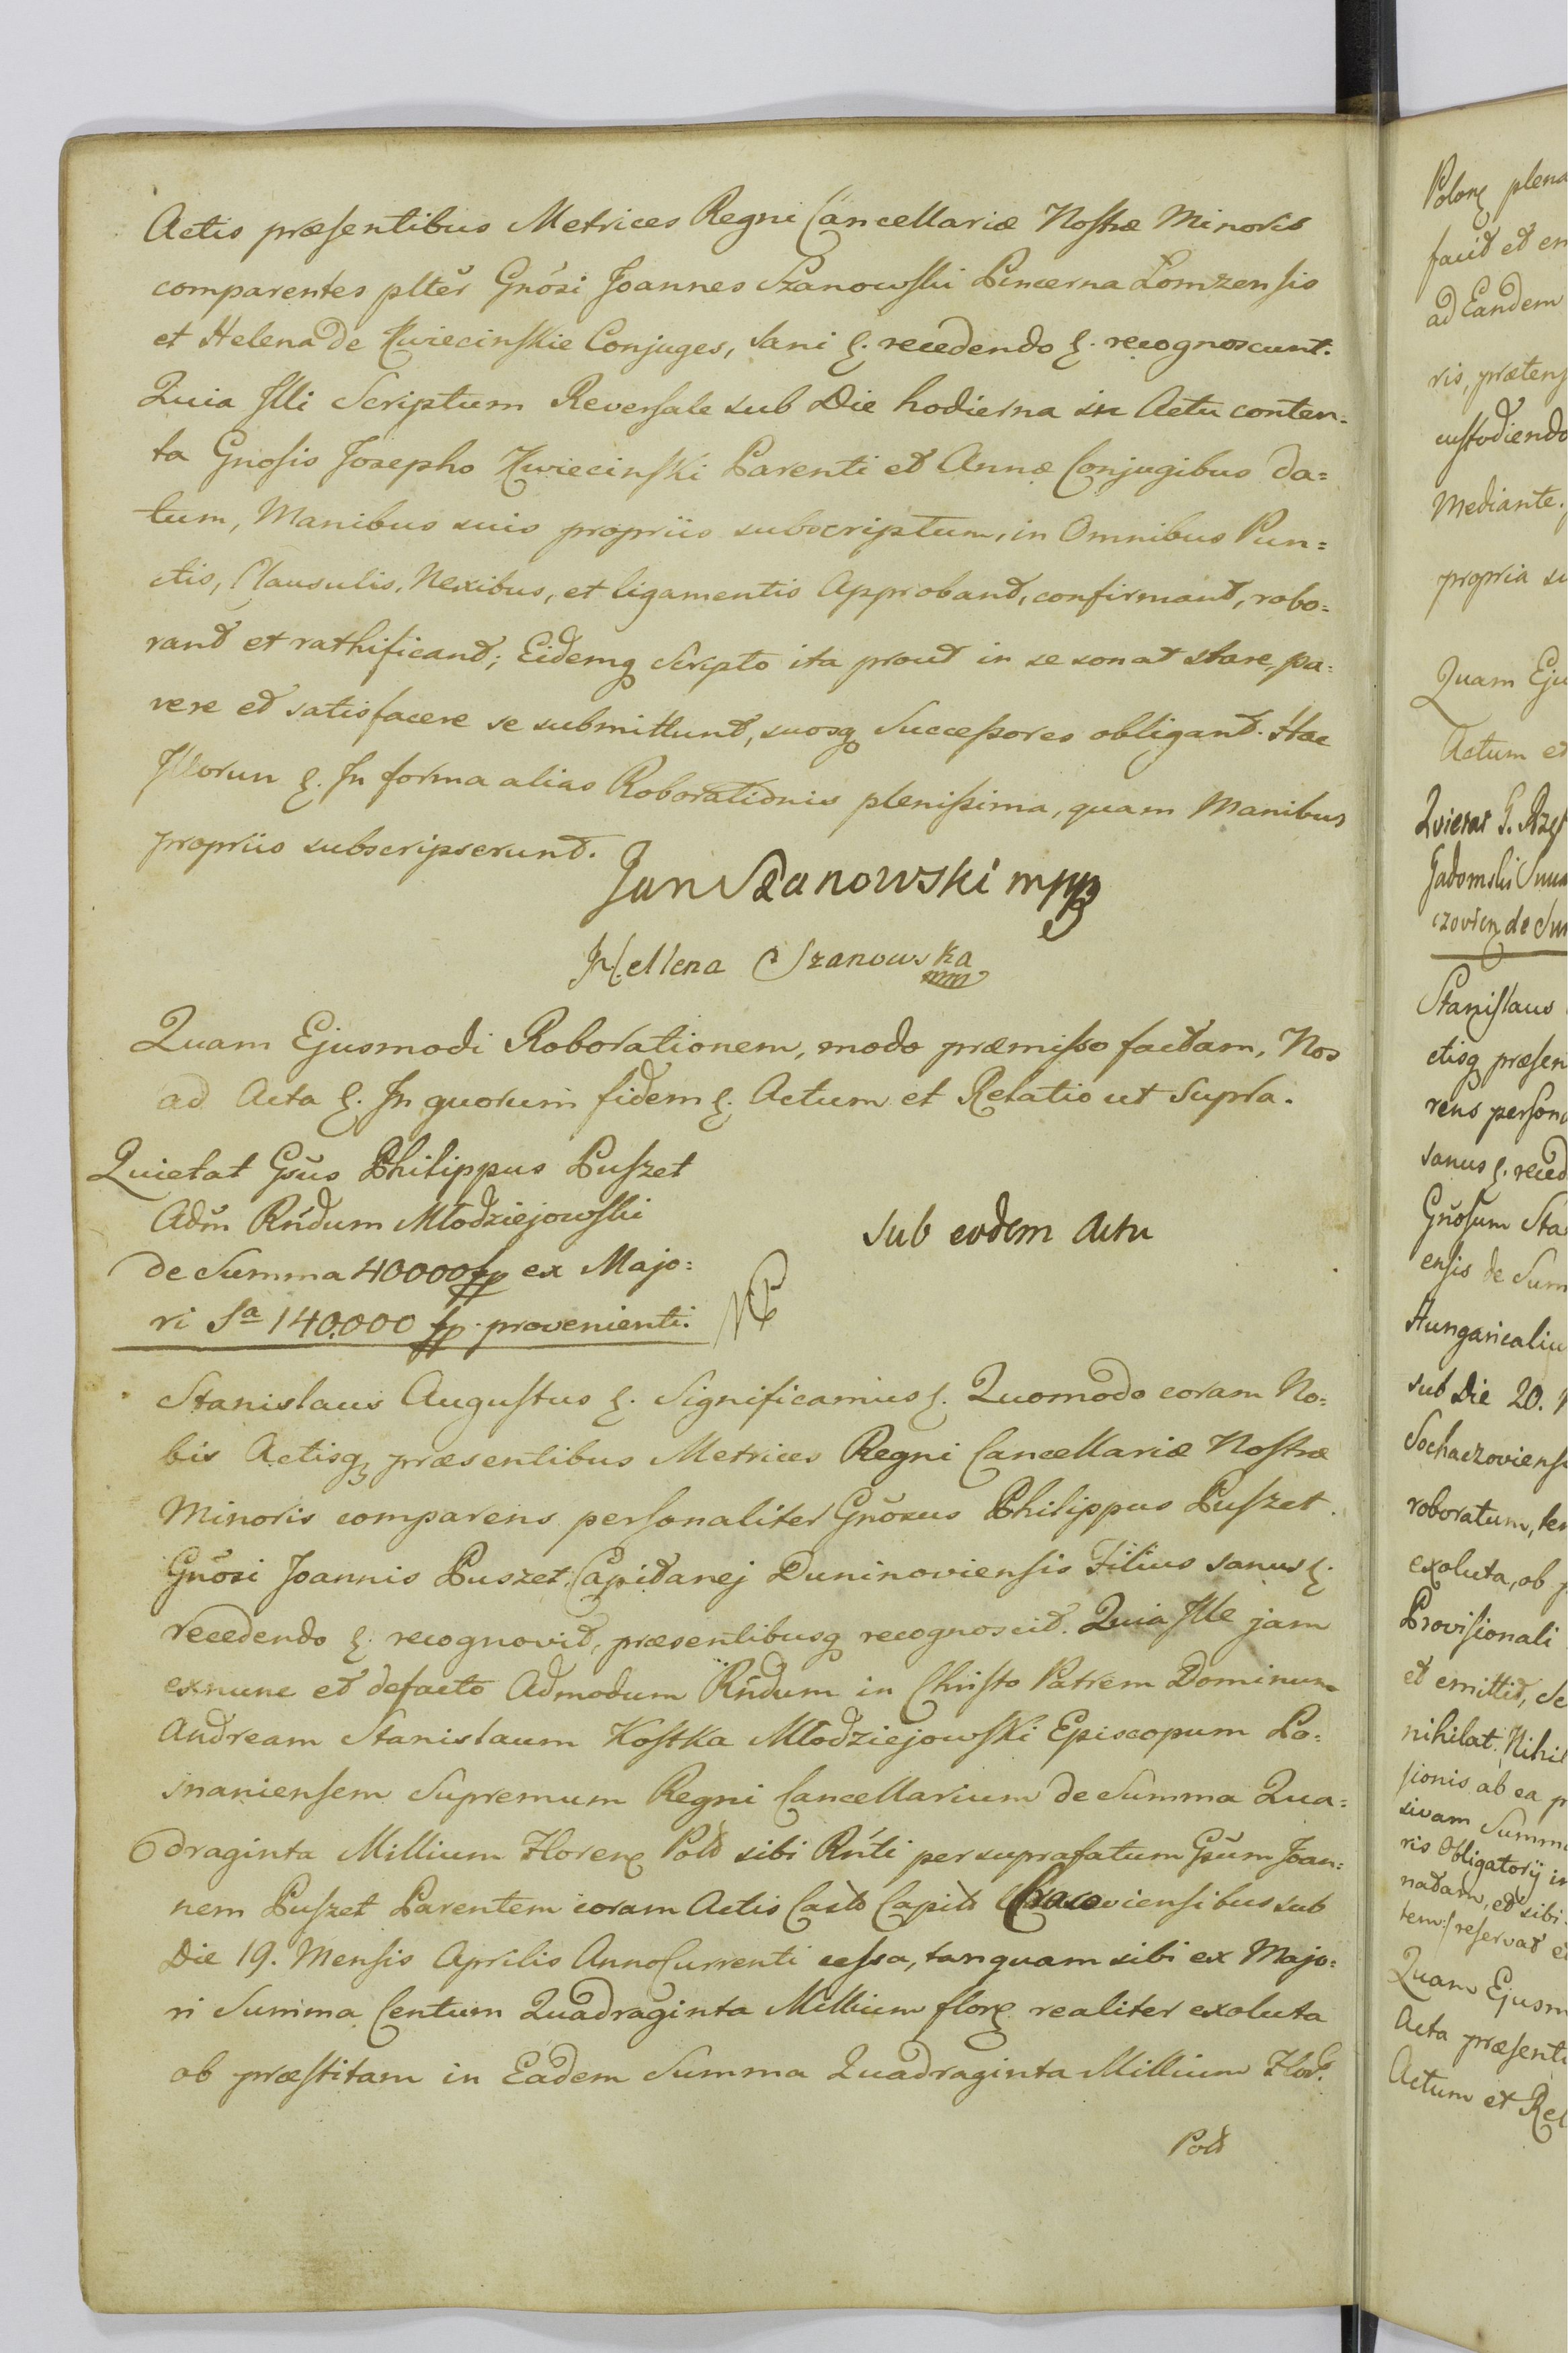 Actis præsentibus Metrices Regni Cancellariæ Nostræ Minoris
comparentes plter Gnosi Joannes Szanowski Pincerna Lomzensis
et Helena de Kwiecinskie Conjuges, sani &. recedendo &. recognoscunt.
Quia Illi Scriptum Reversale sub Die hodierna in Actu conten=
ta Gnosis Josepho Kwiecinski Parenti et Annæ Conjugibus da=
tum, Manibus suis propriis subscriptum, in Omnibus Pun=
ctis, Clausulis, Nexibus, et ligamentis Approbant, confirmant, robo=
rant et rathificant; Eidemq Scripto ita prout in se sonat stare, pa=
rere et satisfacere se submittunt, suosq Successores obligant. Hac
Illorum &. In forma alias Roborationis plenissima, quam Manibus
propriis subscripserunt.
Jan Szanowski mpp
Hellena Szanowska
Quam Ejusmodi Roborationem, modo præmisso factam, Nos
ad Acta &. In quorum fidem &. Actum et Relatio ut supra.
Quietat Gsus Philippus Puszet
Adm Rndum Młodziejowski
de Summa 40000 fp ex Majo=
ri Sa 140.000 fp. provenienti.
Sub eodem Actu
Stanislaus Augustus &. Significamus &. Quomodo coram No=
bis Actisq præsentibus Metrices Regni Cancellariæ Nostræ
Minoris comparens personaliter Gnosus Philippus Puszet
Gnosi Joannis Puszet, Capitanej Duninoviensis Filius sanus &.
recedendo &. recognovit, præsentibusq recognoscit. Quia Ille jam
exnunc et defacto Admodum Rndum in Christo Patrem Dominum
Andream Stanislaum Kostka Młodziejowski Episcopum Po=
snaniensem Supremum Regni Cancellarium de Summa Qua=
draginta Millium Floren Pold sibi Rnti per suprafatum Gsum Joan=
nem Puszet Parentem coram Actis Casts Capits Cracoviensibus sub
Die 19. Mensis Aprilis Anno Currenti cessa, tanquam sibi ex Majo=
ri Summa Centum Quadraginta Millium flor realiter exoluta
ob præstitam in Eadem Summa Quadraginta Millium Flor.
Pold
Polon plena
facit et
ad Eandem
ris,
custodiendo
Mediante
propria
Quam
Actum et
Quietat G.
Gadomski
de
Stanislaus
ctisq
rens
sanus &.
Gnosum
ensis de
sub Die 20.
roboratum,
exoluta, ob
Provisionali
et emittit,
nihilat. Nihil
sionis ab ea
sivam
ris Obligatorij
natam, et sibi
reservat
Quam
Acta
Actum et